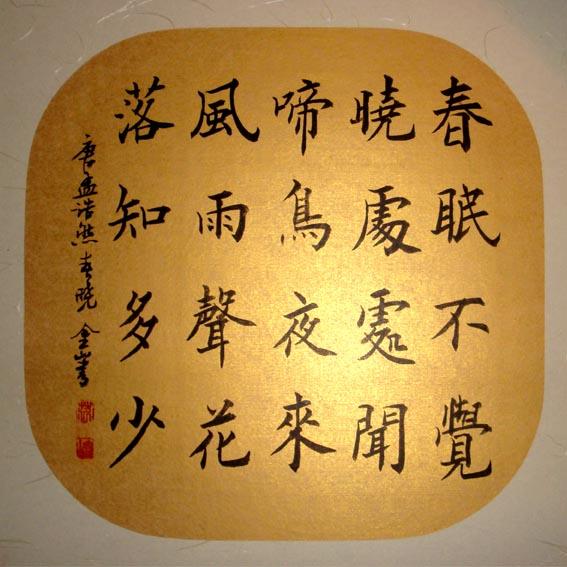 春眠不覺
曉處處聞
啼鳥夜來
風雨聲花
落知多少
唐孟浩然春曉 金